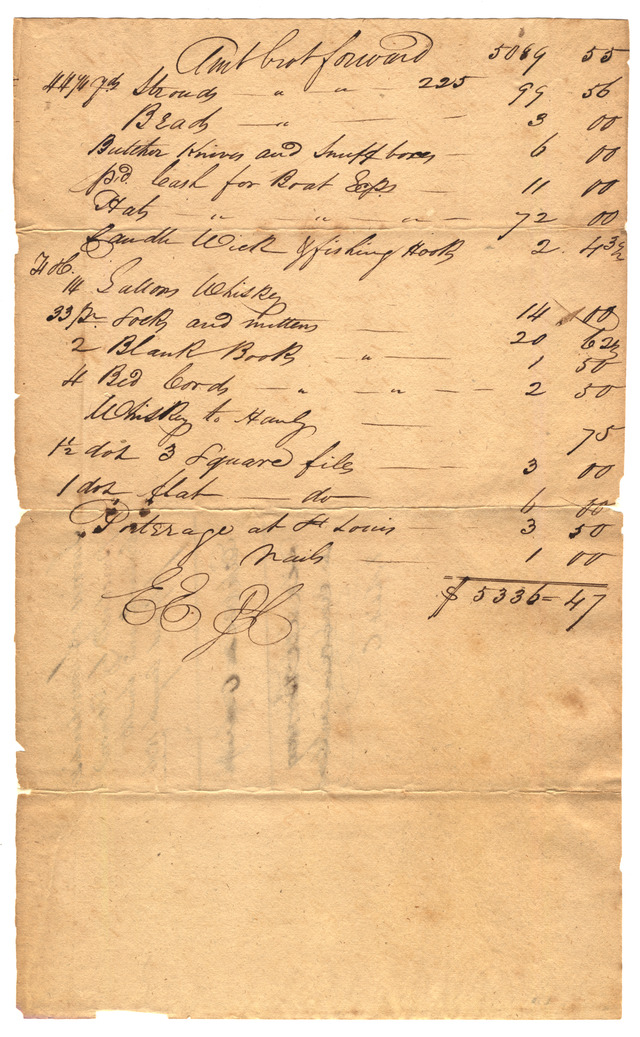 Amt brot forward 5089 55
44 1/4 yds Strouds — " — " — 225 99 56
Beads — " — 3 00
Butcher Knives and Snuff boxes — 6 00
pd. Cash for Boat Exps — 11 00
Hats " " " — 72 00
Candle Wick & fishing Hooks 2. 43 1/2
14 Gallons Whiskey
14 00
33 pr Socks and mittens — 20 62 1/2
2 Blank Books " — 1 50
4 Bed Cords — " — " — 2 50
Whiskey to — 75
1 1/2 doz 3 Square files — 3 00
1 doz flat — do — 6 00
Porterage at St Louis 3 50
Nails — 1 00
$ 5336=47
EE